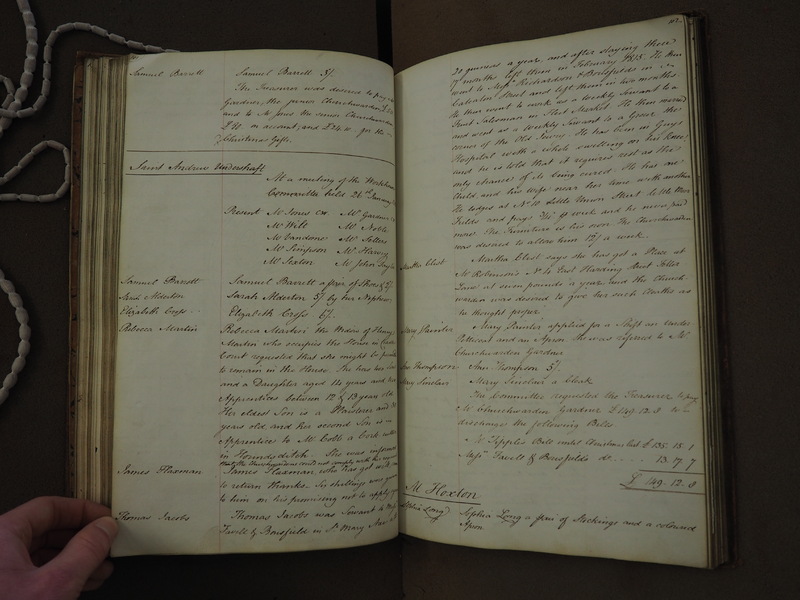 Samuel Barrett Samuel Barrett 5/.
The Treasurer was desired to pay
Gardner, the junior Churchwarden
and to Mr Jones the senior Churchwarden
£10. on account, and £24.10 for the
Christmas Gifts.
Saint Andrew Undershaft
At a meeting of the Workhouse
Committee held 26th January
Present Mr Jones CW. Mr Gardner
Mr Wilt Mr Noble
Mr Vandome Mr Sellers
Mr Simpson Mr Harvey
Mr Sexton Mr John
Samuel Barrett Samuel Barrett a pair of Shoes &
Sarah Alderton Sarah Alderton 5/ by her Nephew
Elizabeth Cross Elizabeth Cross 6/.
Rebecca Martin Rebecca Martin the Widow of Henry
Martin who occupies the House in
Court requested that she might be
to remain in the House. She has two
and a Daughter aged 14 years and
Apprentices between 12 & 13 years old
Her eldest Son is a Plaisterer and
years old, and her second Son is
Apprentice to Mr Cobb a Cork
in Houndsditch. She was informed
that the Churchwardens could not comply with her
James Flaxman James Flaxman, who has got
to return thanks. Six shillings was given
to him on his promising not to apply
Thomas Jacobs Thomas Jacobs was Servant to Messrs
Favell & Bousfield in St Mary Axe at
20 guineas a year, and after staying there
months left them in February 1815. He then
went to Messrs Richardson & Bousfields in
Street and left them in two months.
He then went to work as a Weekly Servant to a
Fruit Salesman in Fleet Market. He then married
and went as a Weekly Servant to a Grocer the
corner of the Old Jewry. He has been in Guys
Hospital with a white swelling on his knee,
and he is told that it requires rest as the
only chance of its being cured. He has one
Child, and his Wife near her time with another
He lodges at No. 10 Little Union Street Little Moor
Fields and pays 3/6 per week and he never paid
more. The Furniture is his own. The Churchwarden
was desired to allow him 12/ a week.
Martha Clost Martha Clost says she has got a Place at
Mr Robinson's No 4 East Harding Street Fetter
Lane at seven pounds a year and the Church-
warden was desired to give her such Cloaths as
he thought proper.
Mary Painter Mary Painter applied for a Shift an under
Petticoat and an Apron. She was referred to Mr
Churchwarden Gardner
Ann Thompson Ann Thompson 5/.
Mary Sinclair Mary Sinclair a Cloak
The Committee requested the Treasurer to pay
Mr Churchwarden Gardner £149.12.8 to
discharge the following Bills
Mr Tipple's Bill until Christmas last £135.15.1
Messrs Favell & Bousfields do ..... 13.17.7
£149.12.8
At Hoxton
Sophia Long Sophia Long a pair of Stockings and a coloured
Apron.